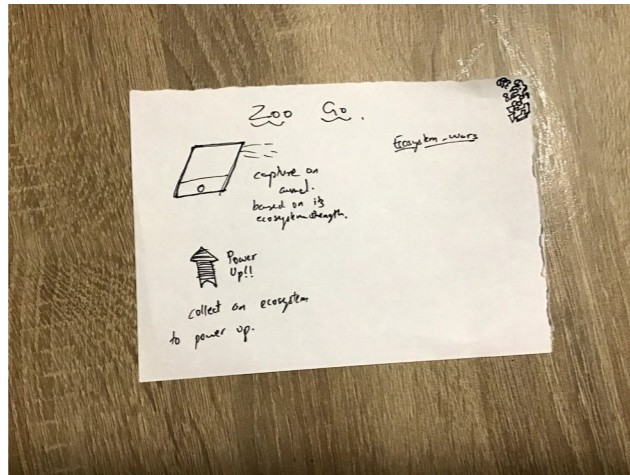 Zoo Go.
Ecosystem-wars
capture an
animal.
based on its
ecosystem strength.
Power
Up!!
collect an ecosystem
to power up.